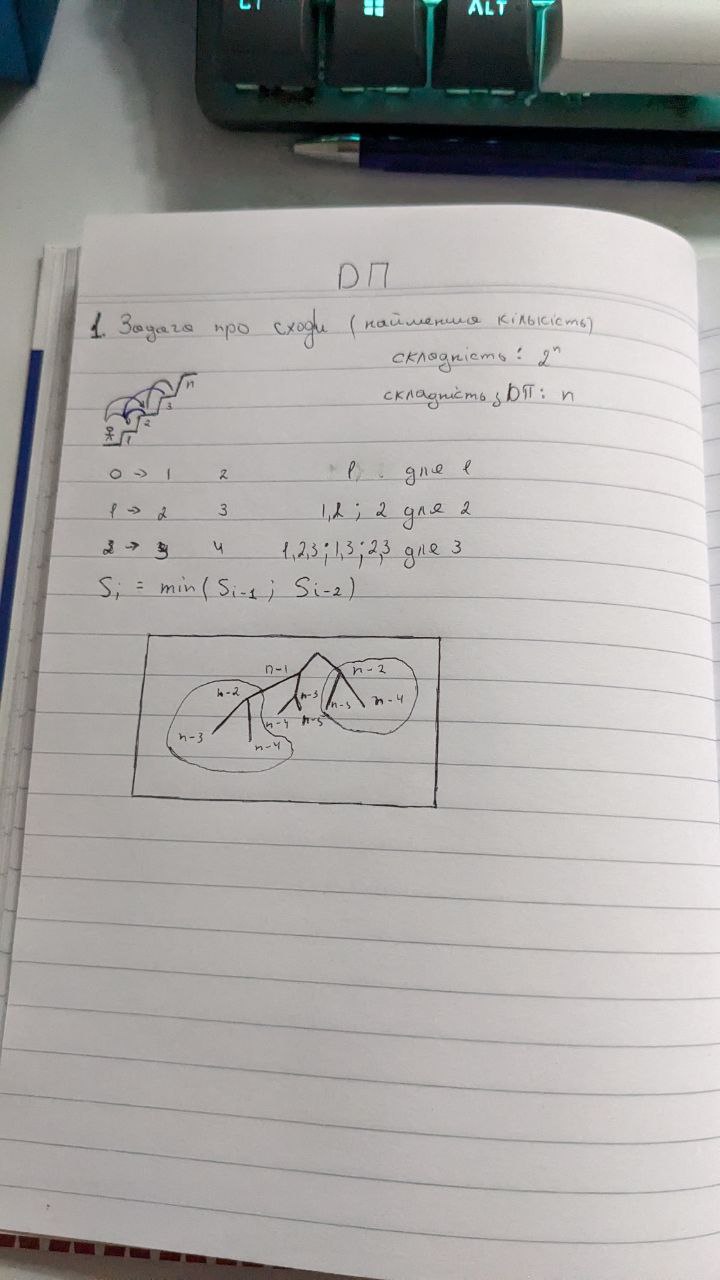 ALT
ДП
1. Задача про сходи (найменша кількість)
складність: 2ⁿ
складність з ДП: n
n
3
2
1
0 → 1 2 1 для 1
1 → 2 3 1,2 ; 2 для 2
2 → 3 4 1,2,3 ; 1,3 ; 2,3 для 3
Sᵢ = min(Sᵢ₋₁ ; Sᵢ₋₂)
n-1 n-2
n-2 n-3 n-3 n-4
n-3 n-4 n-4 n-5